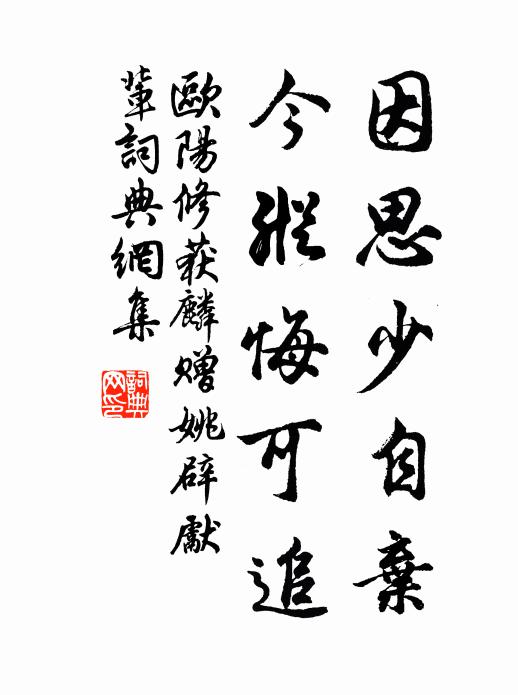 因思少自棄
今縱悔可追
歐陽修獲麟贈姚辟獻
輩詞典網集
詞典
网印